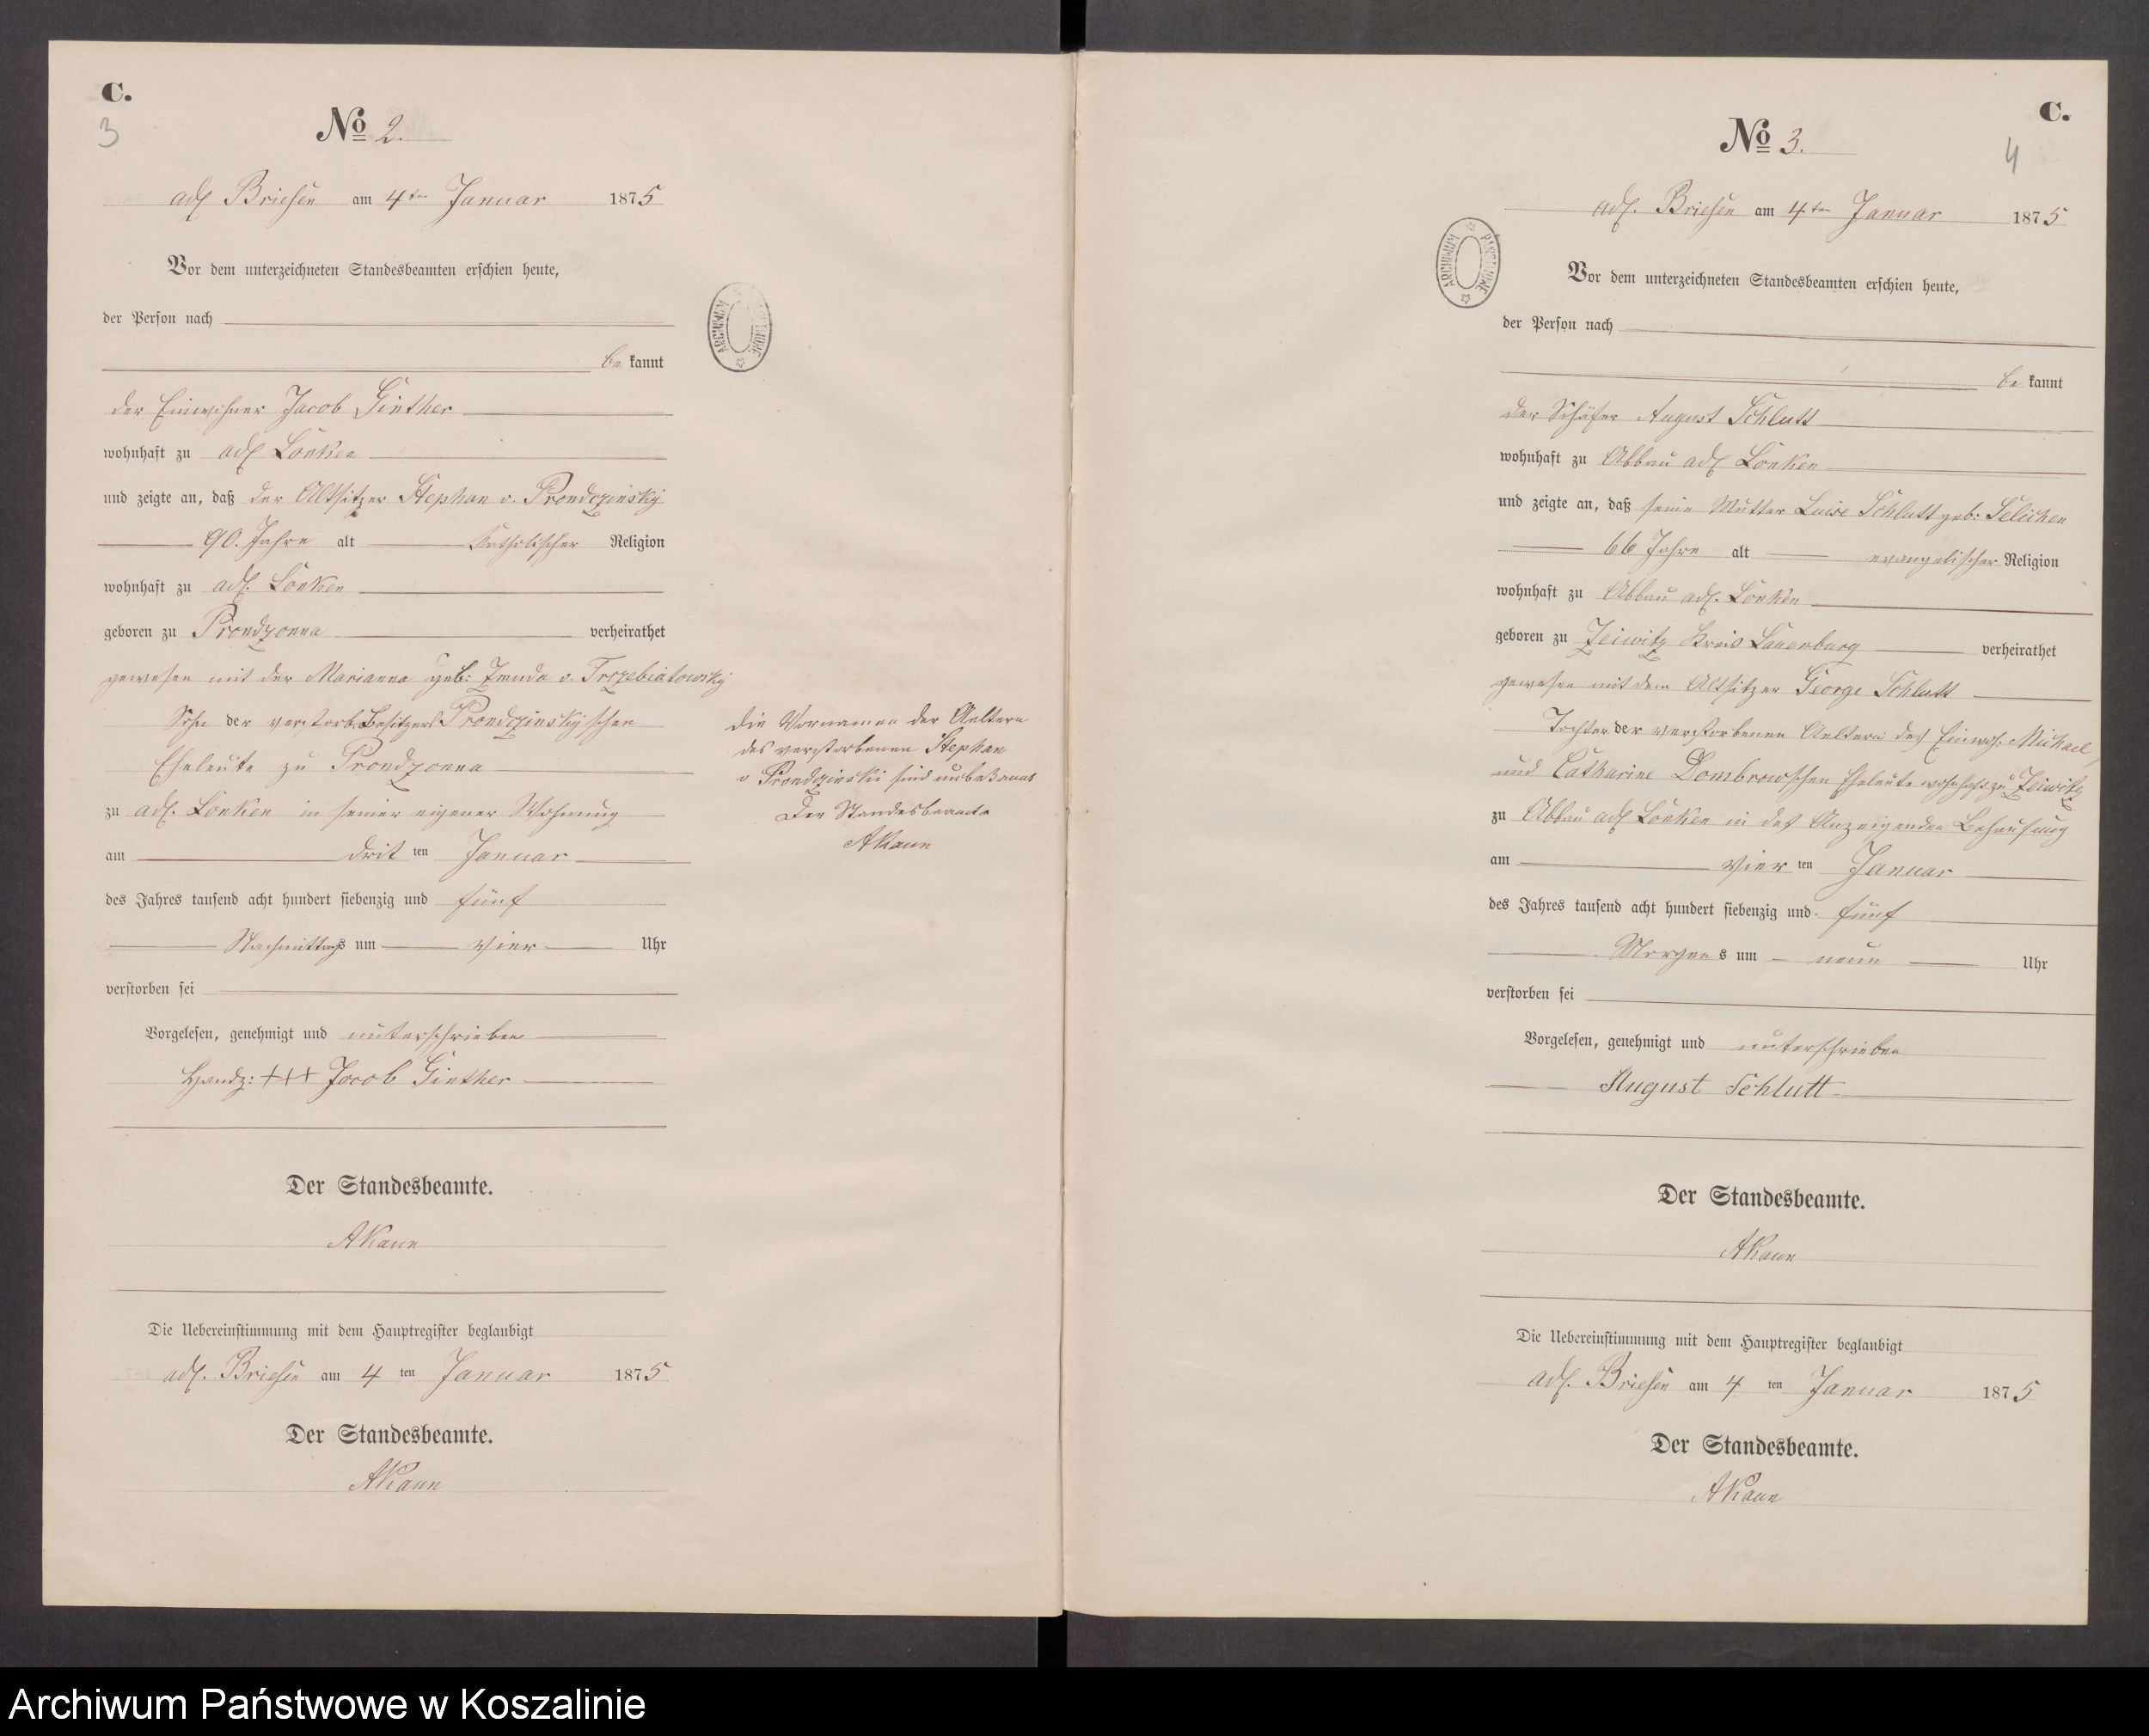 C.
3
No 2.
adl Briesen am 4ten Januar 1875
Vor dem unterzeichneten Standesbeamten erschien heute,
der Person nach
be kannt
der Einwohner Jacob Ginther
wohnhaft zu adl Lonken
und zeigte an, daß der Altsitzer Stephan v. Prondczinsky
90. Jahre alt katholischer Religion
wohnhaft zu adl. Lonken
geboren zu Prondzonna verheirathet
gewesen mit der Marianna geb: Zmuda v. Trzebiatowsky
Sohn der verstorb. Besitzer Prondczinsky'schen
Eheleute zu Prondzonna
zu adl. Lonken in seiner eigener Wohnung
am dritten Januar
des Jahres tausend acht hundert siebenzig und fünf
Nachmittags um vier Uhr
verstorben sei
Vorgelesen, genehmigt und unterschrieben
Handz: +++ Jacob Ginther
Der Standesbeamte.
AKaun
Die Uebereinstimmung mit dem Hauptregister beglaubigt
adl. Briesen am 4 ten Januar 1875
Der Standesbeamte.
AKaun
ARCHIWUM PAŃSTWOWE
Die Vornamen der Aeltern
des verstorbenen Stephan
v Prondzinski sind unbekannt
Der Standesbeamte
AKaun
C.
4
No 3.
adl. Briesen am 4ten Januar 1875
ARCHIWUM PAŃSTWOWE
Vor dem unterzeichneten Standesbeamten erschien heute,
der Person nach
be kannt
der Schäfer August Schlutt
wohnhaft zu Abbau adl Lonken
und zeigte an, daß seine Mutter Luise Schlutt geb: Selichen
66 Jahre alt evangelischer Religion
wohnhaft zu Abbau adl. Lonken
geboren zu Zeiwitz Kreis Lauenburg verheirathet
gewesen mit dem Altsitzer George Schlutt
Tochter der verstorbenen Aeltern des Einwoh. Michael
und Catharine Dombrow'schen Eheleute wohnhaft zu Zeiwitz
zu Abbau adl Lonken in des Anzeigenden Behausung
am vierten Januar
des Jahres tausend acht hundert siebenzig und fünf
Morgens um neun Uhr
verstorben sei
Vorgelesen, genehmigt und unterschrieben
August Schlutt
Der Standesbeamte.
AKaun
Die Uebereinstimmung mit dem Hauptregister beglaubigt
adl. Briesen am 4 ten Januar 1875
Der Standesbeamte.
AKaun
Archiwum Państwowe w Koszalinie